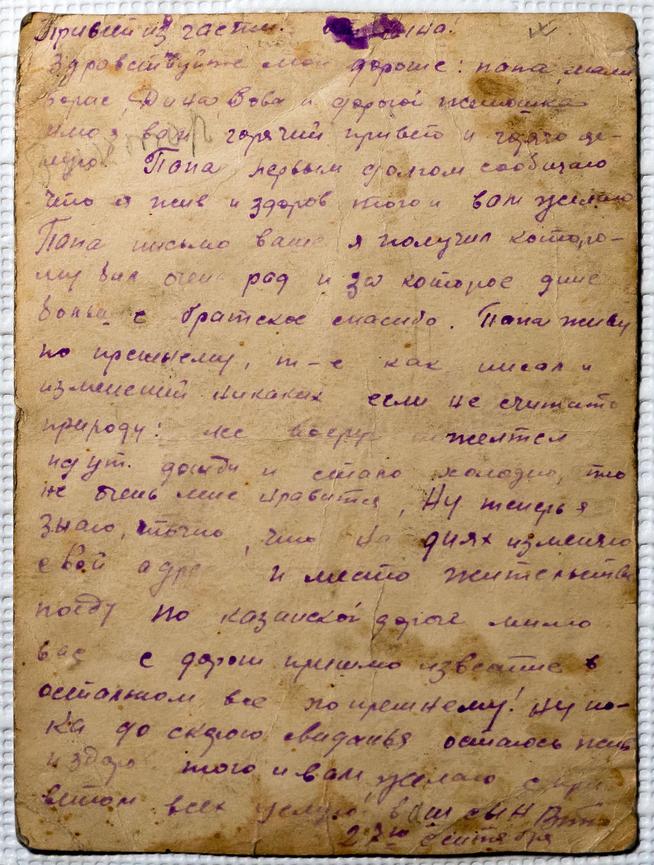 Привет из части.
Здравствуйте мои дорогие: папа, мама
Борис, Дина Вова и дорогой
вам горячий привет и горячо це-
лую. Папа первым долгом сообщаю
что я жив и здоров того и вам желаю
Папа письмо ваше я получил которо-
му был очень рад и за которое
с братское спасибо. Папа живу
по прежнему, т-е как писал и
изменений никаких если не считать
природу: все вокруг желтеет
идут дожди и стало холодно, что
не очень мне нравится, Ну теперь я
знаю, точно, что на днях изменяю
свой адрес и место жительства
поеду по казанской дороге мимо
вас с дороги пришлю известие в
остальном все по прежнему! Ну по-
ка до скорого свиданья остаюсь жив
и здоров того и вам желаю с при
ветом всех целую, ваш сын
27го сентября